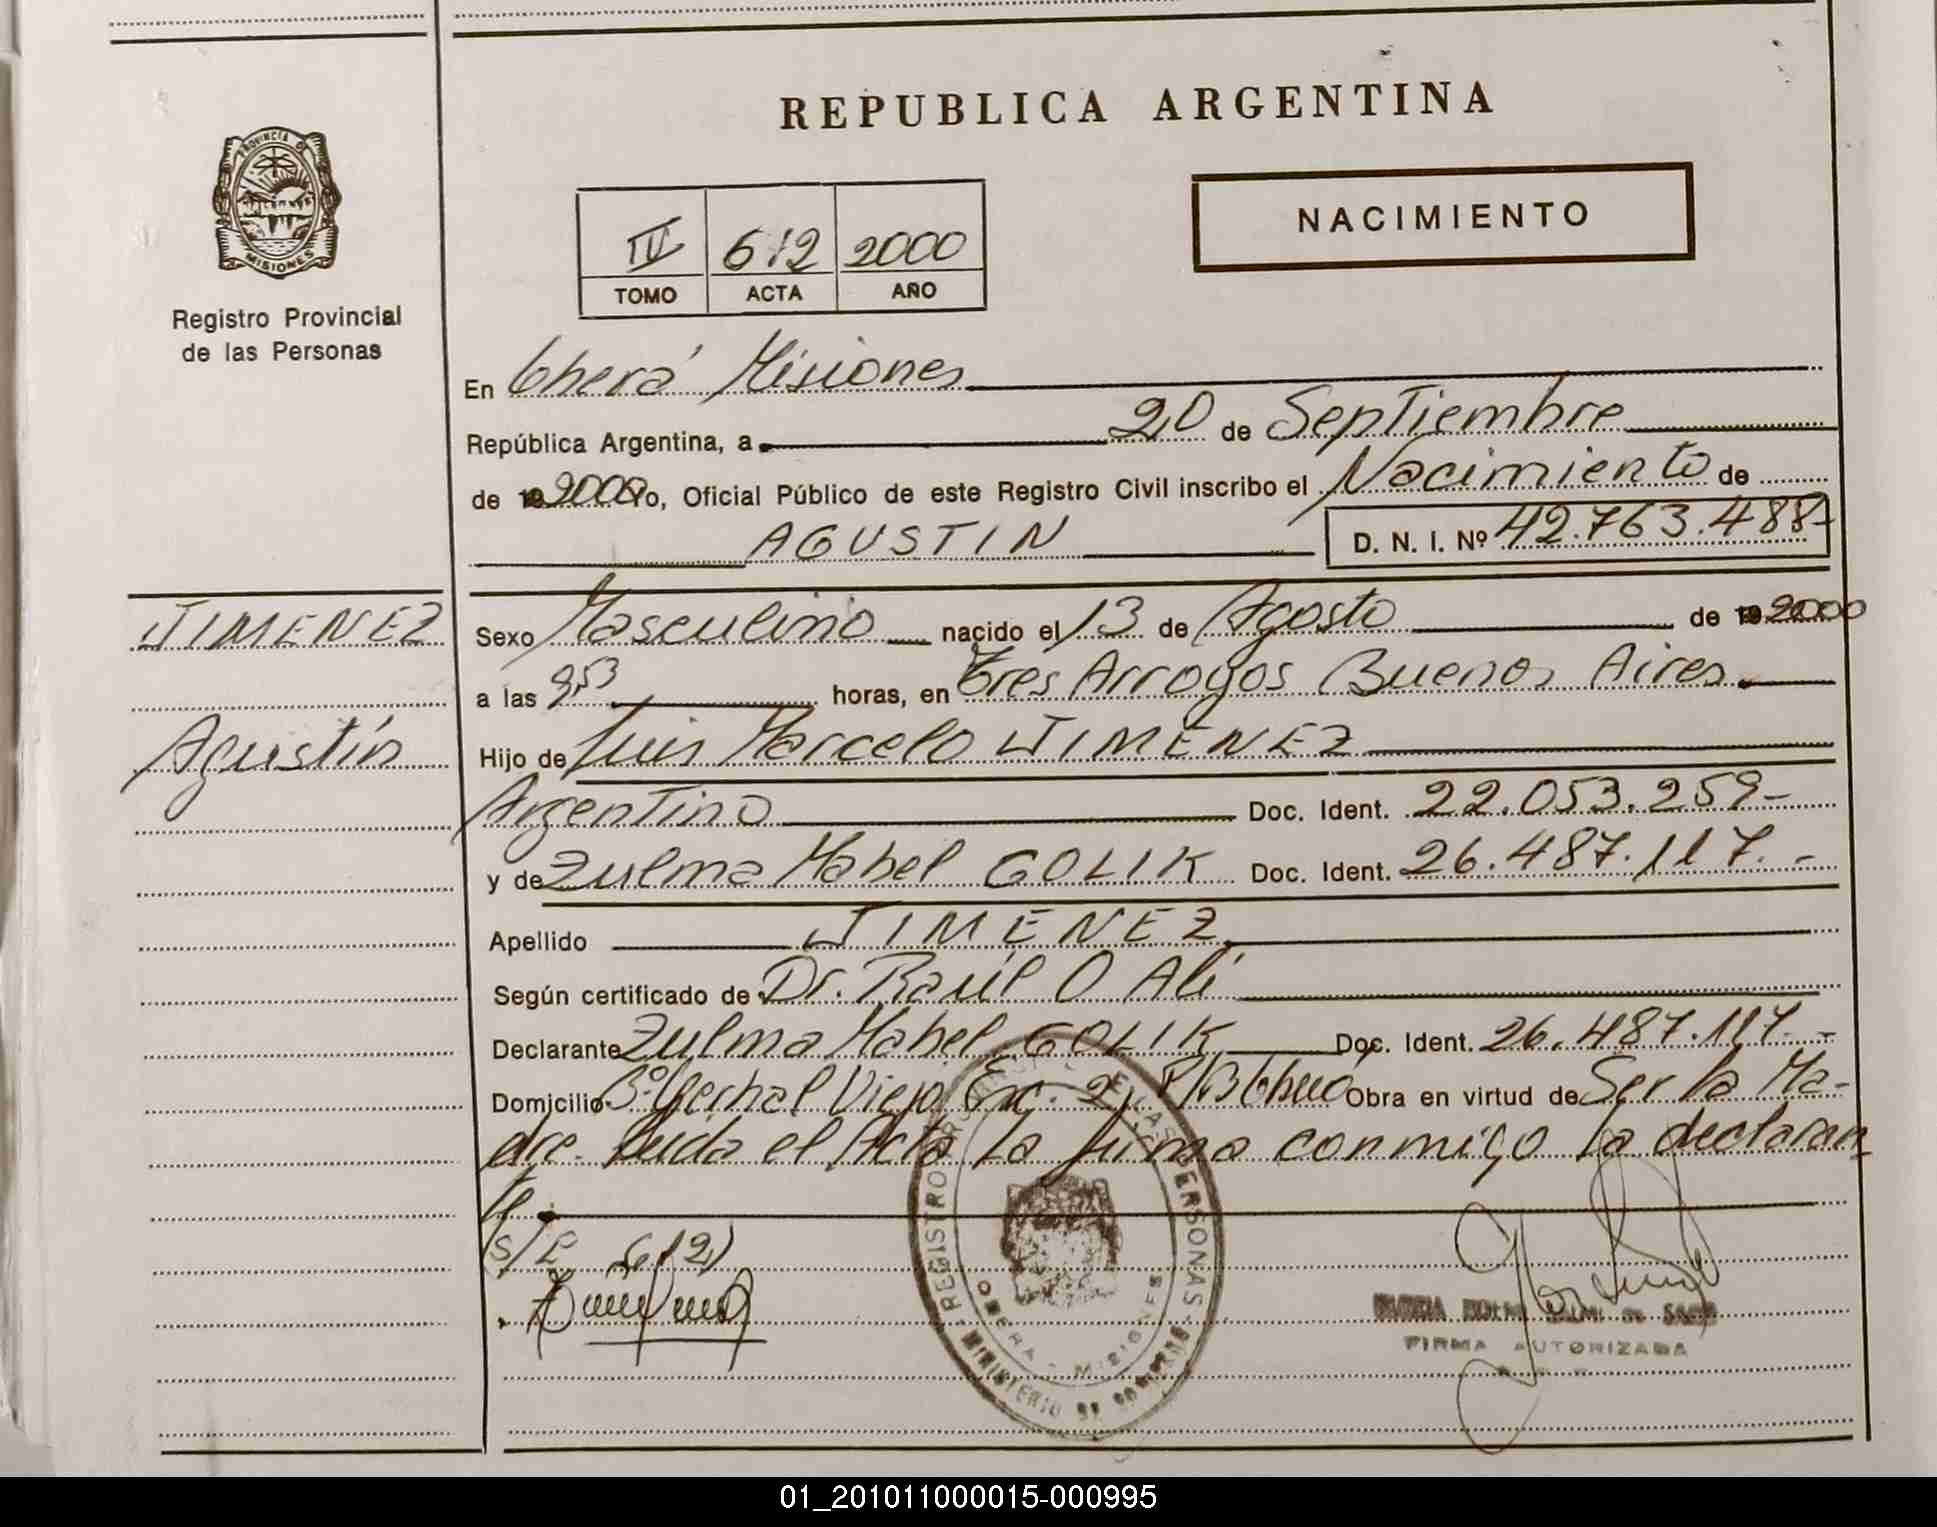 REPUBLICA ARGENTINA
PROVINCIA DE
MISIONES
Registro Provincial
de las Personas
NACIMIENTO
IV 612 2000
TOMO ACTA AÑO
En Oberá Misiones
República Argentina, a 20 de Septiembre
de 2000 Yo, Oficial Público de este Registro Civil inscribo el Nacimiento de
AGUSTIN D. N. I. Nº 42.763.488-
JIMENEZ
Agustín
Sexo Masculino nacido el 13 de Agosto de 2000
a las 9,53 horas, en Tres Arroyos Buenos Aires
Hijo de Luis Marcelo JIMENEZ
Argentino Doc. Ident. 22.053.259-
y de Zulma Mabel GOLIK Doc. Ident. 26.487.117.-
Apellido JIMENEZ
Según certificado de Dr. Raúl O Alí
Declarante Zulma Mabel GOLIK Doc. Ident. 26.487.117.-
Domicilio Bº Yerbal Viejo Obra en virtud de Ser la Ma-
dre. Leida el Acta la firma conmigo la declaran
te
REGISTRO PROVINCIAL DE LAS PERSONAS
OBERA - MISIONES
MINISTERIO DE GOBIERNO
FIRMA AUTORIZADA
01_201011000015-000995